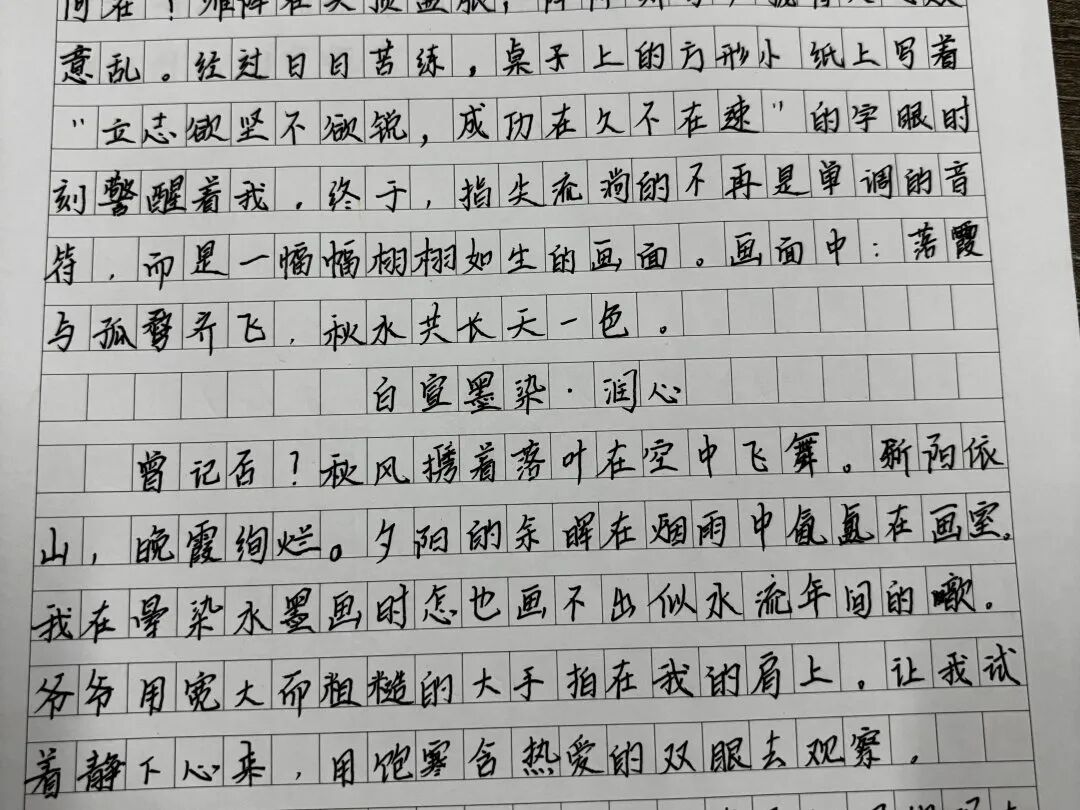 意乱。经过日日苦练，桌子上的方形小纸上写着
“立志欲坚不欲锐，成功在久不在速”的字眼时
刻警醒着我。终于，指尖流淌的不再是单调的音
符，而是一幅幅栩栩如生的画面。画面中：落霞
与孤鹜齐飞，秋水共长天一色。
白宣墨染·润心
曾记否？秋风携着落叶在空中飞舞。斜阳依
山，晚霞绚烂。夕阳的余晖在烟雨中氤氲在画室。
我在晕染水墨画时怎也画不出似水流年间的歌。
爷爷用宽大而粗糙的大手拍在我的肩上，让我试
着静下心来，用饱含热爱的双眼去观察。